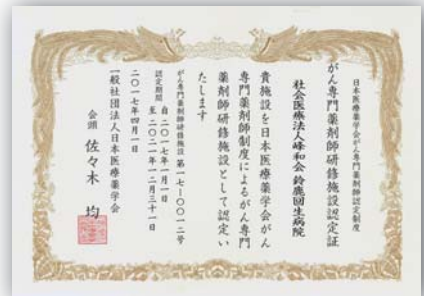 日本医療薬学会がん専門薬剤師認定制度
がん専門薬剤師研修施設認定証
社会医療法人峰和会 鈴鹿回生病院
貴施設を日本医療薬学会がん
専門薬剤師制度によるがん専門
薬剤師研修施設として認定い
たします
がん専門薬剤師研修施設 第一七-〇〇一二号
認定期間 自 二〇一七年一月一日
至 二〇二一年一二月三十一日
二〇一七年四月一日
一般社団法人日本医療薬学会
会頭 佐々木 均